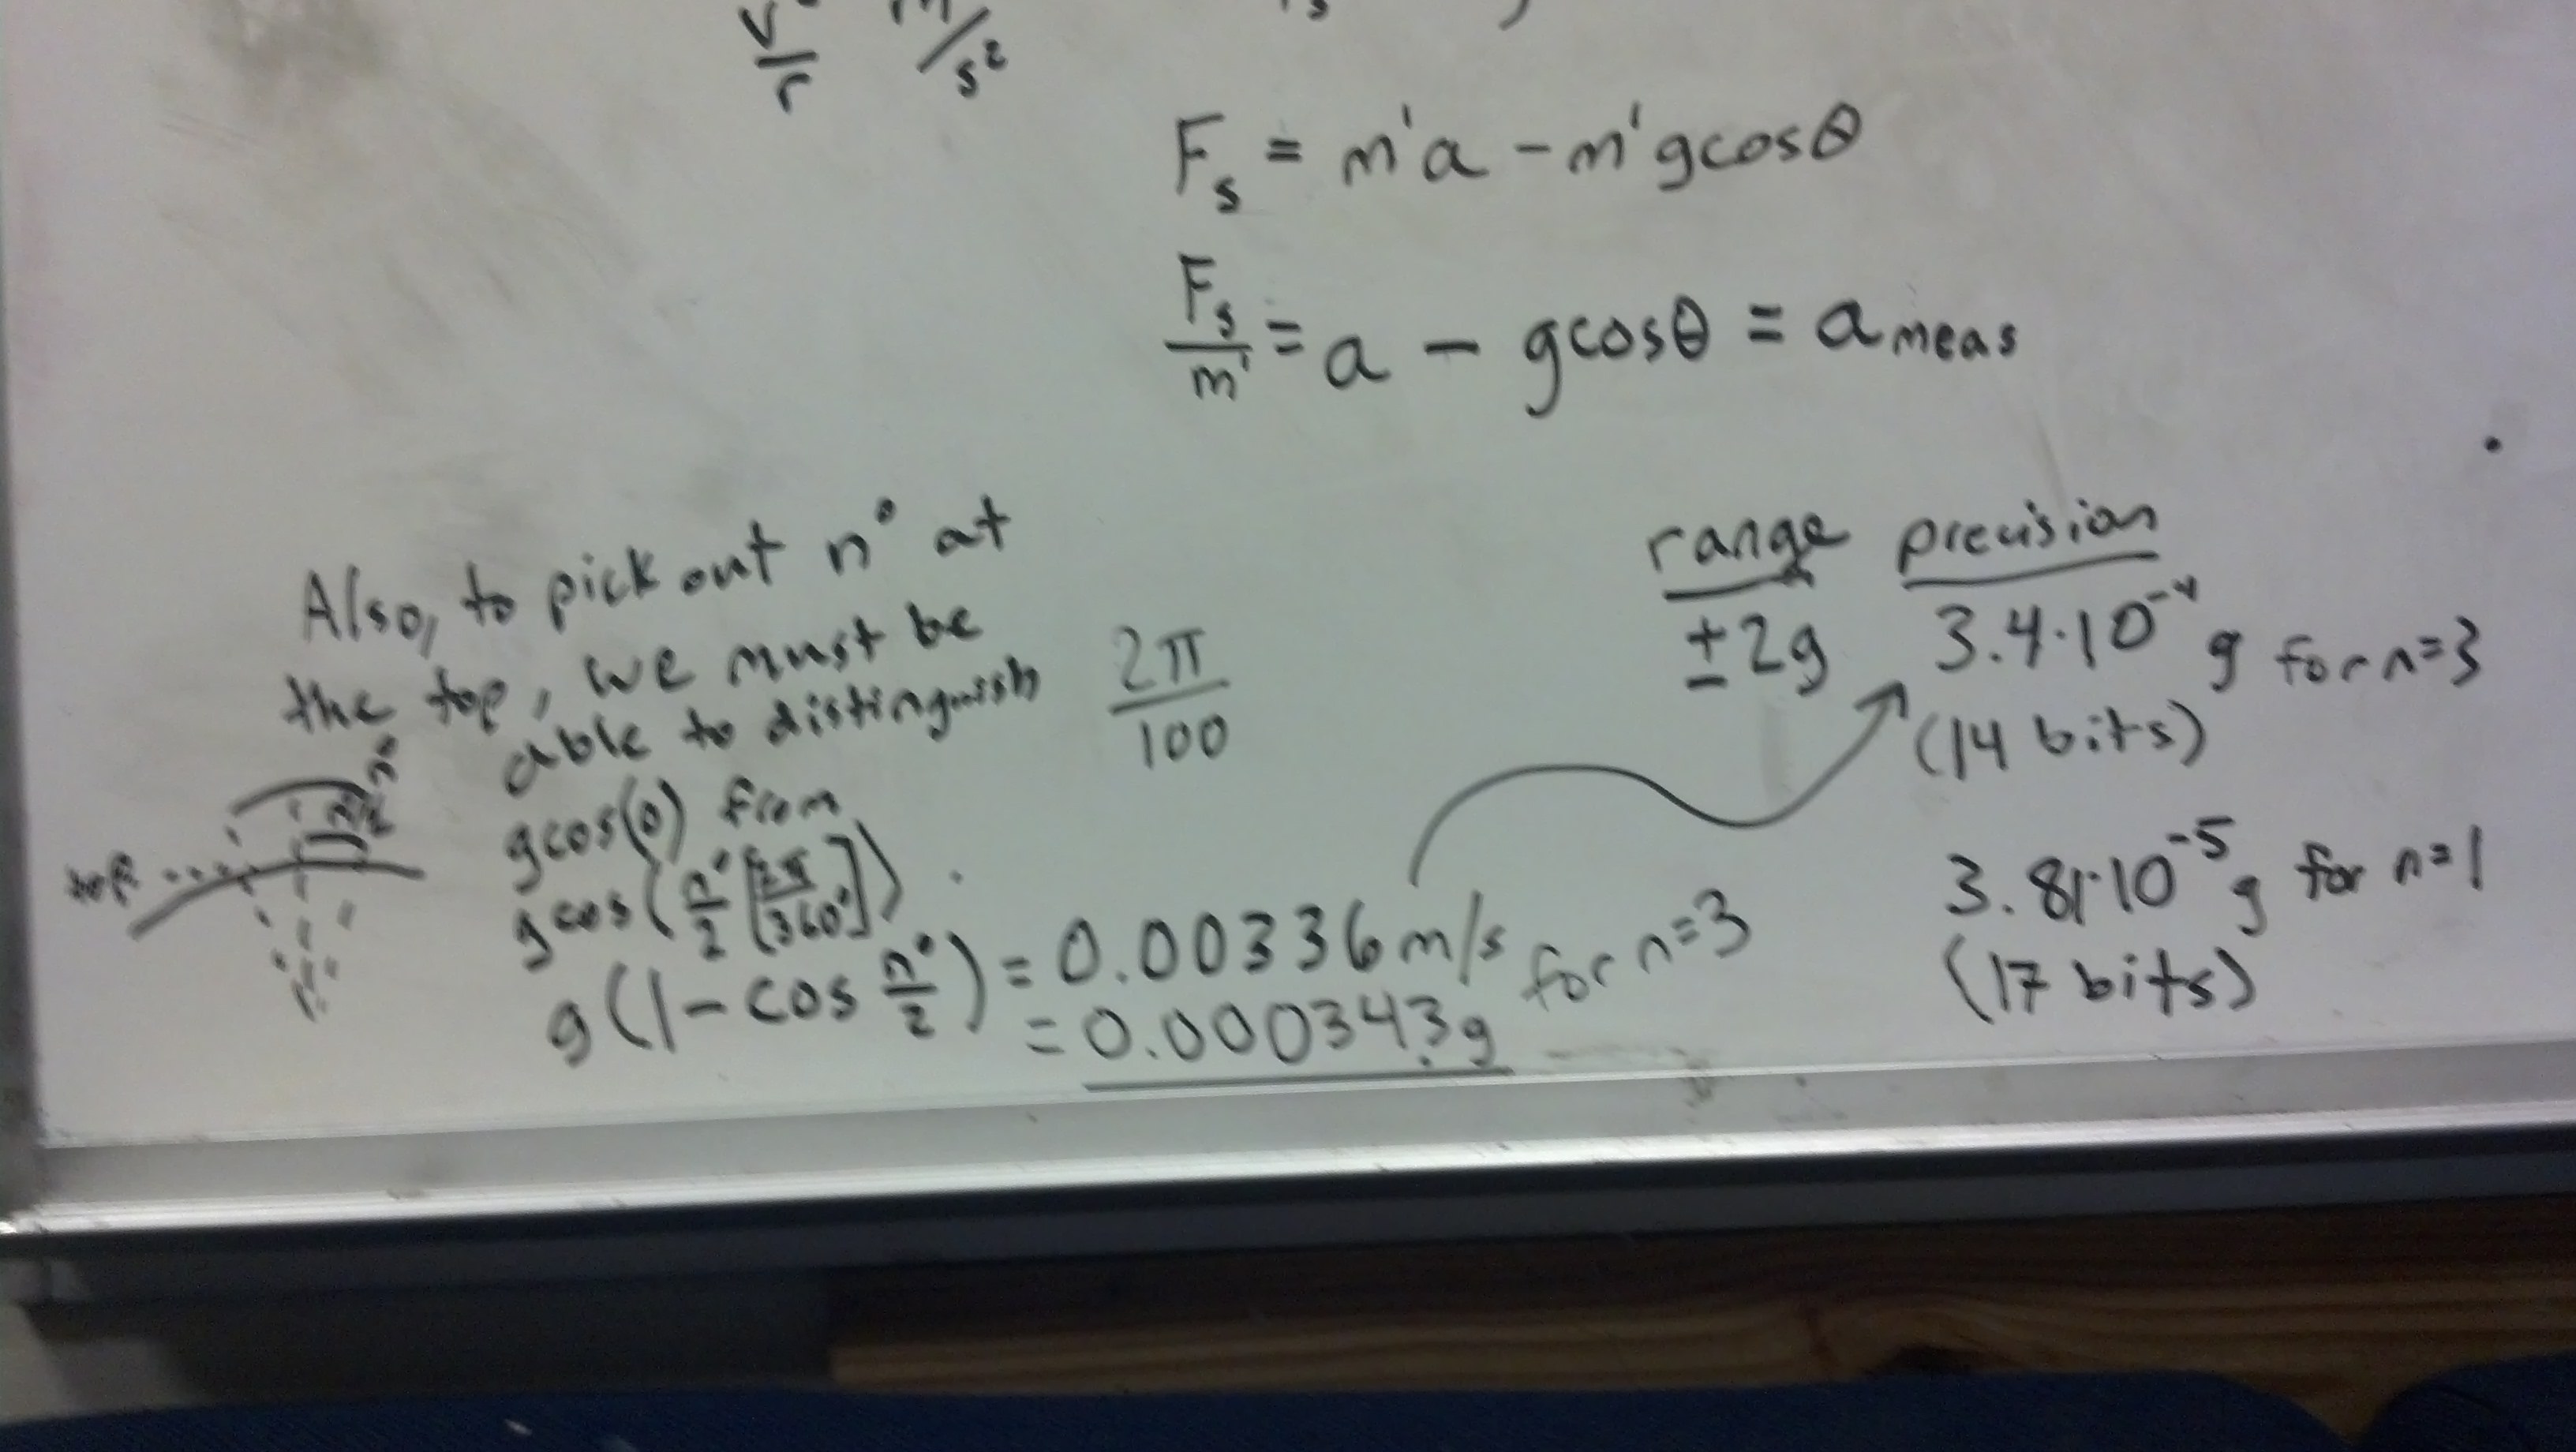 v/r m/s²
F_s = m'a - m'gcosθ
F_s/m' = a - gcosθ = a_meas
Also, to pick out n° at
the top, we must be
able to distinguish
gcos(0) from
gcos(n°/2 [2π/360°]).
g(1-cos n°/2) = 0.00336 m/s for n=3
= 0.000343g
2π/100
top
n°
n/2
range precision
±2g 3.4·10⁻⁴ g for n=3
(14 bits)
3.81·10⁻⁵ g for n=1
(17 bits)